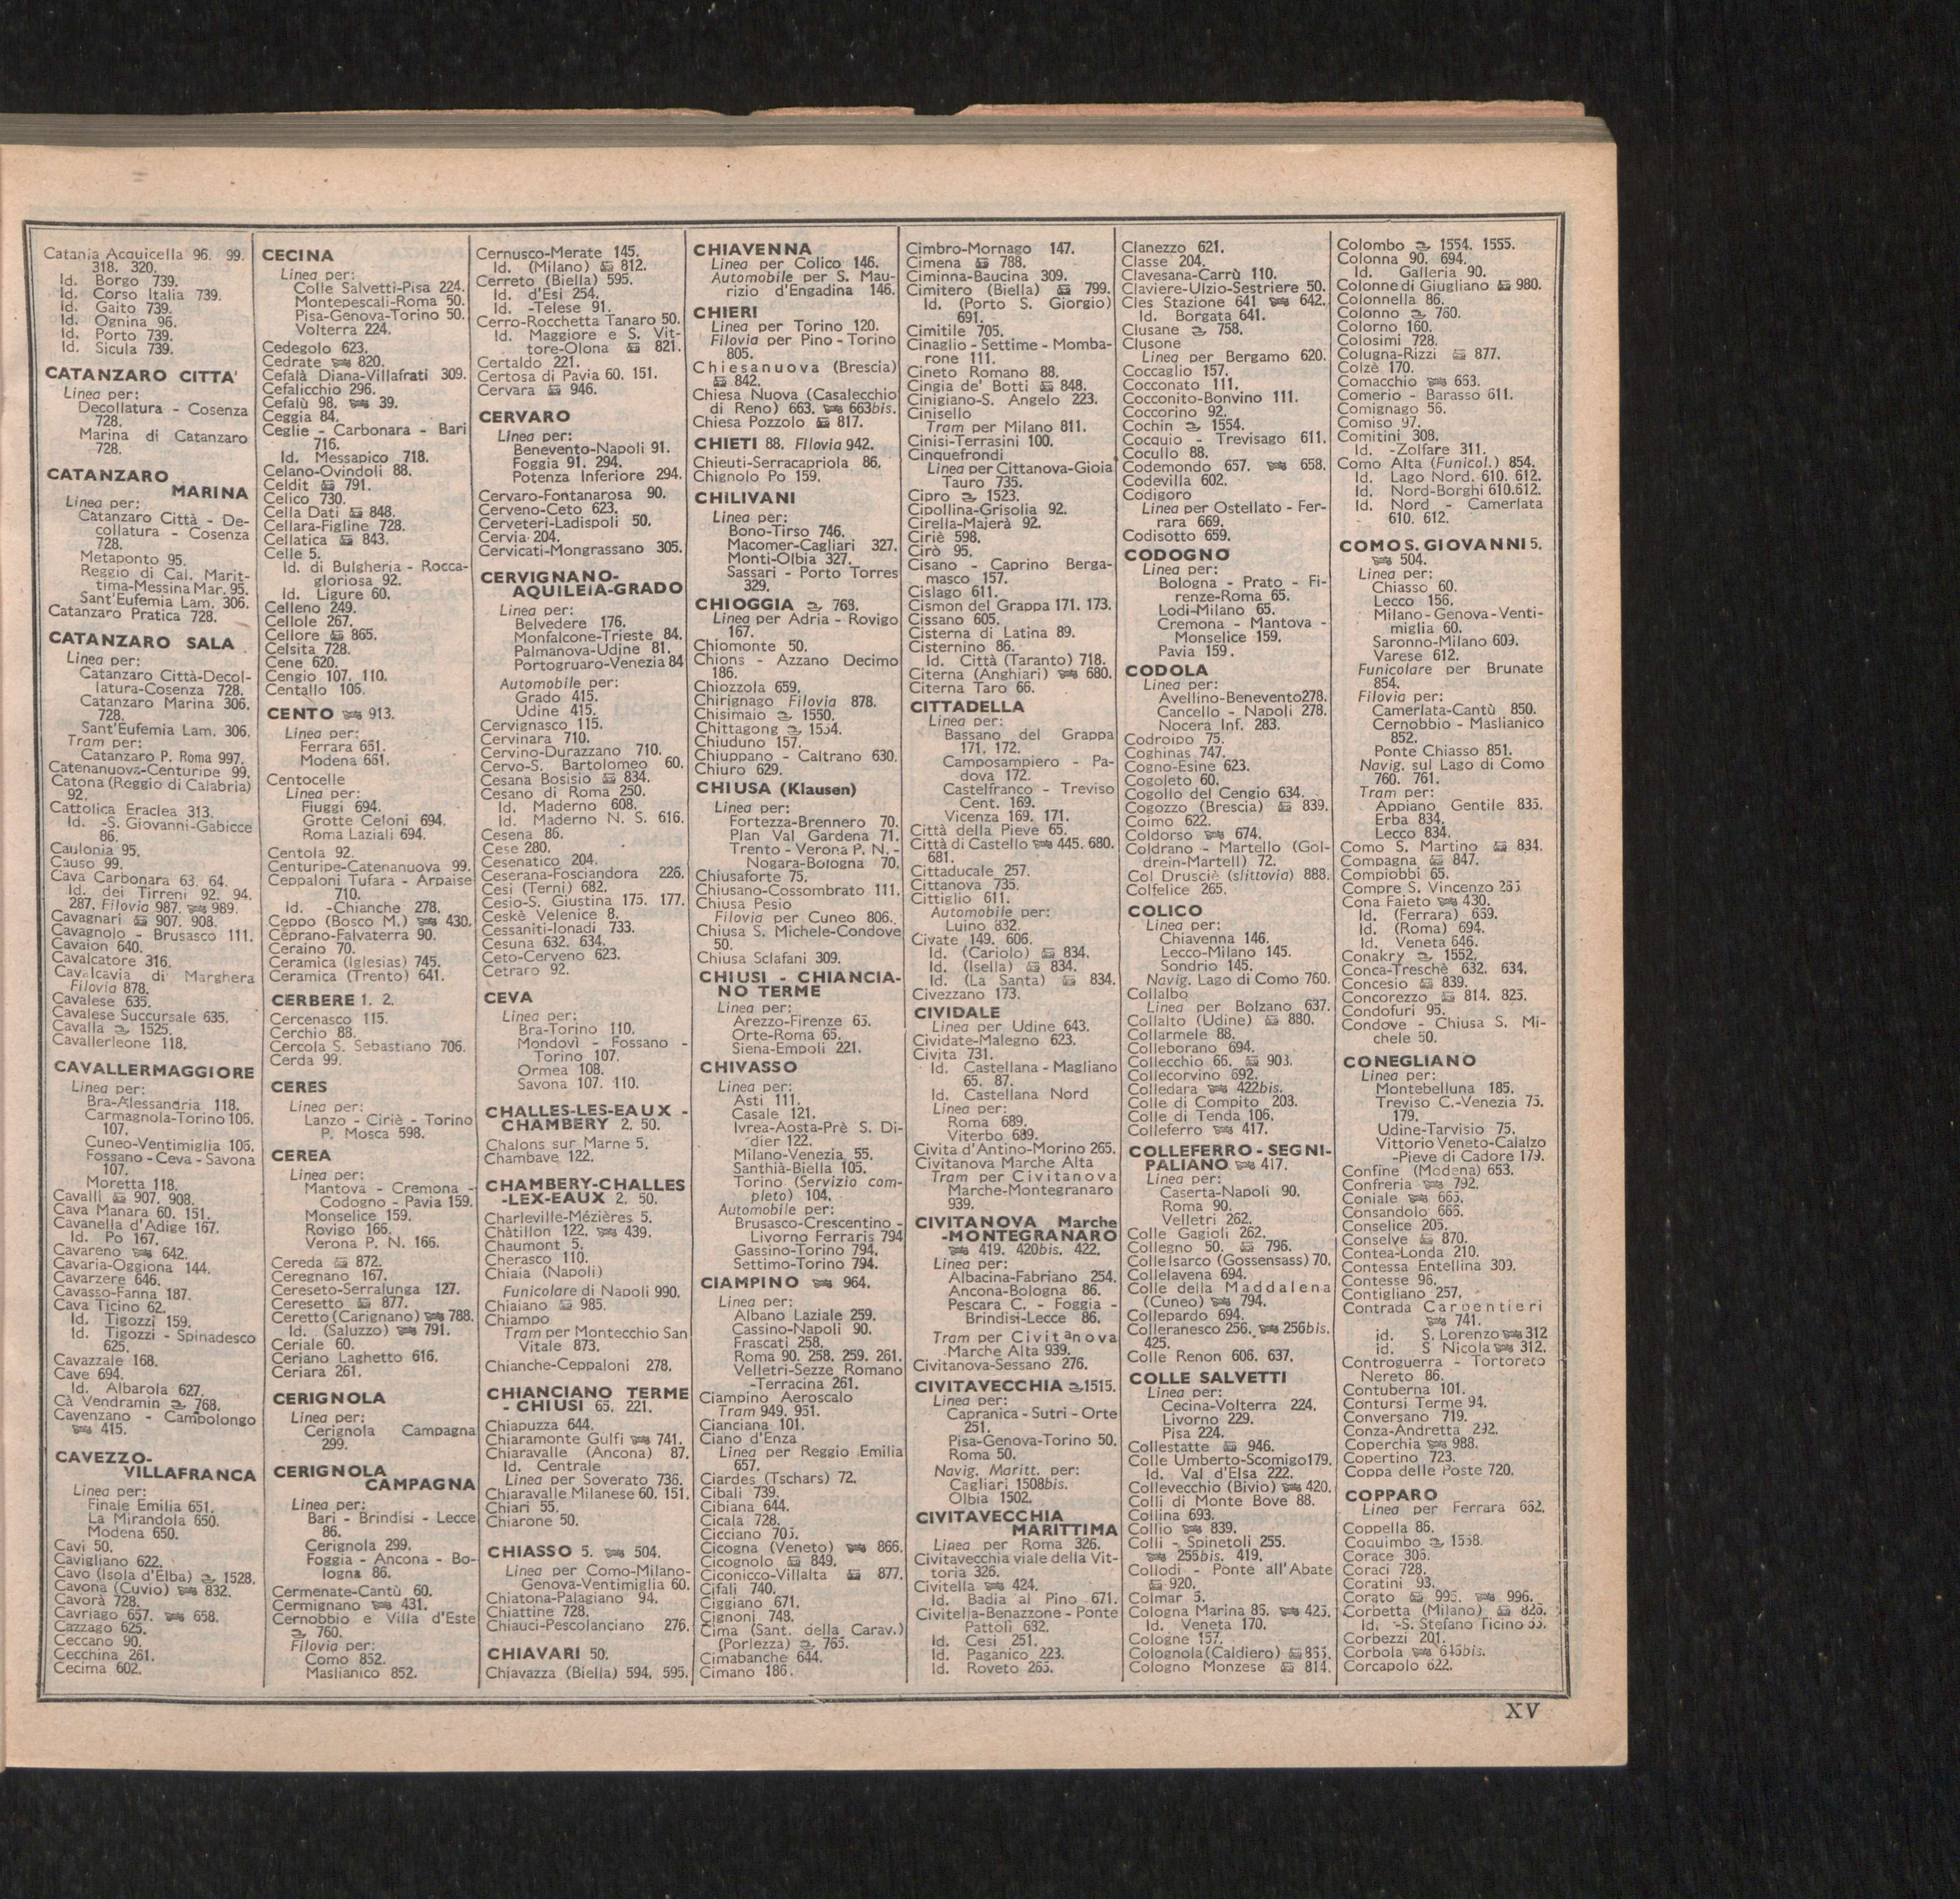 Catania Acquicella 96. 99.
318. 320.
Id. Borgo 739.
Id. Corso Italia 739.
Id. Gaito 739.
Id. Ognina 96.
Id. Porto 739.
Id. Sicula 739.
CATANZARO CITTA'
Linea per:
Decollatura - Cosenza
728.
Marina di Catanzaro
728.
CATANZARO
MARINA
Linea per:
Catanzaro Città - De-
collatura - Cosenza
728.
Metaponto 95.
Reggio di Cal. Marit-
tima-Messina Mar. 95.
Sant'Eufemia Lam. 306.
Catanzaro Pratica 728.
CATANZARO SALA
Linea per:
Catanzaro Città-Decol-
latura-Cosenza 728.
Catanzaro Marina 306.
728.
Sant'Eufemia Lam. 306.
Tram per:
Catanzaro P. Roma 997.
Catenanuova-Centuripe 99.
Catona (Reggio di Calabria)
92.
Cattolica Eraclea 313.
Id. -S. Giovanni-Gabicce
86.
Caulonia 95.
Causo 99.
Cava Carbonara 63. 64.
Id. dei Tirreni 92. 94.
287. Filovia 987. 989.
Cavagnari 907. 908.
Cavagnolo - Brusasco 111.
Cavaion 640.
Cavalcatore 316.
Cavalcavia di Marghera
Filovia 878.
Cavalese 635.
Cavalese Succursale 635.
Cavalla 1525.
Cavallerleone 118.
CAVALLERMAGGIORE
Linea per:
Bra-Alessandria 118.
Carmagnola-Torino 106.
107.
Cuneo-Ventimiglia 106.
Fossano - Ceva - Savona
107.
Moretta 118.
Cavalli 907. 908.
Cava Manara 60. 151.
Cavanella d'Adige 167.
Id. Po 167.
Cavareno 642.
Cavaria-Oggiona 144.
Cavarzere 646.
Cavasso-Fanna 187.
Cava Ticino 62.
Id. Tigozzi 159.
Id. Tigozzi - Spinadesco
625.
Cavazzale 168.
Cave 694.
Id. Albarola 627.
Cà Vendramin 768.
Cavenzano - Campolongo
415.
CAVEZZO-
VILLAFRANCA
Linea per:
Finale Emilia 651.
La Mirandola 650.
Modena 650.
Cavi 50.
Cavigliano 622.
Cavo (Isola d'Elba) 1528.
Cavona (Cuvio) 832.
Cavorà 728.
Cavriago 657. 658.
Cazzago 625.
Ceccano 90.
Cecchina 261.
Cecima 602.
CECINA
Linea per:
Colle Salvetti-Pisa 224.
Montepescali-Roma 50.
Pisa-Genova-Torino 50.
Volterra 224.
Cedegolo 623.
Cedrate 820.
Cefalà Diana-Villafrati 309.
Cefalicchio 296.
Cefalù 98. 39.
Ceggia 84.
Ceglie - Carbonara - Bari
716.
Id. Messapico 718.
Celano-Ovindoli 88.
Celdit 791.
Celico 730.
Cella Dati 848.
Cellara-Figline 728.
Cellatica 843.
Celle 5.
Id. di Bulgheria - Rocca-
gloriosa 92.
Id. Ligure 60.
Celleno 249.
Cellole 267.
Cellore 865.
Celsita 728.
Cene 620.
Cengio 107. 110.
Centallo 106.
CENTO 913.
Linea per:
Ferrara 661.
Modena 661.
Centocelle
Linea per:
Fiuggi 694.
Grotte Celoni 694.
Roma Laziali 694.
Centola 92.
Centuripe-Catenanuova 99.
Ceppaloni Tufara - Arpaise
710.
Id. -Chianche 278.
Ceppo (Bosco M.) 430.
Ceprano-Falvaterra 90.
Ceraino 70.
Ceramica (Iglesias) 745.
Ceramica (Trento) 641.
CERBERE 1. 2.
Cercenasco 115.
Cerchio 88.
Cercola S. Sebastiano 706.
Cerda 99.
CERES
Linea per:
Lanzo - Ciriè - Torino
P. Mosca 598.
CEREA
Linea per:
Mantova - Cremona -
Codogno - Pavia 159.
Monselice 159.
Rovigo 166.
Verona P. N. 166.
Cereda 872.
Ceregnano 167.
Cereseto-Serralunga 127.
Ceresetto 877.
Ceretto (Carignano) 788.
Id. (Saluzzo) 791.
Ceriale 60.
Ceriano Laghetto 616.
Ceriara 261.
CERIGNOLA
Linea per:
Cerignola Campagna
299.
CERIGNOLA
CAMPAGNA
Linea per:
Bari - Brindisi - Lecce
86.
Cerignola 299.
Foggia - Ancona - Bo-
logna 86.
Cermenate-Cantù 60.
Cermignano 431.
Cernobbio e Villa d'Este
760.
Filovia per:
Como 852.
Maslianico 852.
Cernusco-Merate 145.
Id. (Milano) 812.
Cerreto (Biella) 595.
Id. d'Esi 254.
Id. -Telese 91.
Cerro-Rocchetta Tanaro 50.
Id. Maggiore e S. Vit-
tore-Olona 821.
Certaldo 221.
Certosa di Pavia 60. 151.
Cervara 946.
CERVARO
Linea per:
Benevento-Napoli 91.
Foggia 91. 294.
Potenza Inferiore 294.
Cervaro-Fontanarosa 90.
Cerveno-Ceto 623.
Cerveteri-Ladispoli 50.
Cervia 204.
Cervicati-Mongrassano 305.
CERVIGNANO-
AQUILEIA-GRADO
Linea per:
Belvedere 176.
Monfalcone-Trieste 84.
Palmanova-Udine 81.
Portogruaro-Venezia 84
Automobile per:
Grado 415.
Udine 415.
Cervignasco 115.
Cervinara 710.
Cervino-Durazzano 710.
Cervo-S. Bartolomeo 60.
Cesana Bosisio 834.
Cesano di Roma 250.
Id. Maderno 608.
Id. Maderno N. S. 616.
Cesena 86.
Cese 280.
Cesenatico 204.
Ceserana-Fosciandora 226.
Cesi (Terni) 682.
Cesio-S. Giustina 175. 177.
Ceskè Velenice 8.
Cessaniti-Ionadi 733.
Cesuna 632. 634.
Ceto-Cerveno 623.
Cetraro 92.
CEVA
Linea per:
Bra-Torino 110.
Mondovì - Fossano -
Torino 107.
Ormea 108.
Savona 107. 110.
CHALLES-LES-EAUX -
CHAMBERY 2. 50.
Chalons sur Marne 5.
Chambave 122.
CHAMBERY-CHALLES
-LEX-EAUX 2. 50.
Charleville-Mézières 5.
Châtillon 122. 439.
Chaumont 5.
Cherasco 110.
Chiaia (Napoli)
Funicolare di Napoli 990.
Chiaiano 985.
Chiampo
Tram per Montecchio San
Vitale 873.
Chianche-Ceppaloni 278.
CHIANCIANO TERME
- CHIUSI 65. 221.
Chiapuzza 644.
Chiaramonte Gulfi 741.
Chiaravalle (Ancona) 87.
Id. Centrale
Linea per Soverato 736.
Chiaravalle Milanese 60. 151.
Chiari 55.
Chiarone 50.
CHIASSO 5. 504.
Linea per Como-Milano-
Genova-Ventimiglia 60.
Chiatona-Palagiano 94.
Chiattine 728.
Chiauci-Pescolanciano 276.
CHIAVARI 50.
Chiavazza (Biella) 594. 595.
CHIAVENNA
Linea per Colico 146.
Automobile per S. Mau-
rizio d'Engadina 146.
CHIERI
Linea per Torino 120.
Filovia per Pino - Torino
805.
Chiesanuova (Brescia)
842.
Chiesa Nuova (Casalecchio
di Reno) 663. 663bis.
Chiesa Pozzolo 817.
CHIETI 88. Filovia 942.
Chieuti-Serracapriola 86.
Chignolo Po 159.
CHILIVANI
Linea per:
Bono-Tirso 746.
Macomer-Cagliari 327.
Monti-Olbia 327.
Sassari - Porto Torres
329.
CHIOGGIA 768.
Linea per Adria - Rovigo
167.
Chiomonte 50.
Chions - Azzano Decimo
186.
Chiozzola 659.
Chirignago Filovia 878.
Chisimaio 1550.
Chittagong 1554.
Chiuduno 157.
Chiuppano - Caltrano 630.
Chiuro 629.
CHIUSA (Klausen)
Linea per:
Fortezza-Brennero 70.
Plan Val Gardena 71.
Trento - Verona P. N. -
Nogara-Bologna 70.
Chiusaforte 75.
Chiusano-Cossombrato 111.
Chiusa Pesio
Filovia per Cuneo 806.
Chiusa S. Michele-Condove
50.
Chiusa Sclafani 309.
CHIUSI - CHIANCIA-
NO TERME
Linea per:
Arezzo-Firenze 65.
Orte-Roma 65.
Siena-Empoli 221.
CHIVASSO
Linea per:
Asti 111.
Casale 121.
Ivrea-Aosta-Prè S. Di-
dier 122.
Milano-Venezia 55.
Santhià-Biella 105.
Torino (Servizio com-
pleto) 104.
Automobile per:
Brusasco-Crescentino -
Livorno Ferraris 794
Gassino-Torino 794.
Settimo-Torino 794.
CIAMPINO 964.
Linea per:
Albano Laziale 259.
Cassino-Napoli 90.
Frascati 258.
Roma 90. 258. 259. 261.
Velletri-Sezze Romano
-Terracina 261.
Ciampino Aeroscalo
Tram 949. 951.
Cianciana 101.
Ciano d'Enza
Linea per Reggio Emilia
657.
Ciardes (Tschars) 72.
Cibali 739.
Cibiana 644.
Cicala 728.
Cicciano 705.
Cicogna (Veneto) 866.
Cicognolo 849.
Ciconicco-Villalta 877.
Cifali 740.
Ciggiano 671.
Cignoni 748.
Cima (Sant. della Carav.)
(Porlezza) 765.
Cimabanche 644.
Cimano 186.
Cimbro-Mornago 147.
Cimena 788.
Ciminna-Baucina 309.
Cimitero (Biella) 799.
Id. (Porto S. Giorgio)
691.
Cimitile 705.
Cinaglio - Settime - Momba-
rone 111.
Cineto Romano 88.
Cingia de' Botti 848.
Cinigiano-S. Angelo 223.
Cinisello
Tram per Milano 811.
Cinisi-Terrasini 100.
Cinquefrondi
Linea per Cittanova-Gioia
Tauro 735.
Cipro 1523.
Cipollina-Grisolia 92.
Cirella-Majerà 92.
Ciriè 598.
Cirò 95.
Cisano - Caprino Berga-
masco 157.
Cislago 611.
Cismon del Grappa 171. 173.
Cissano 605.
Cisterna di Latina 89.
Cisternino 86.
Id. Città (Taranto) 718.
Citerna (Anghiari) 680.
Citerna Taro 66.
CITTADELLA
Linea per:
Bassano del Grappa
171. 172.
Camposampiero - Pa-
dova 172.
Castelfranco - Treviso
Cent. 169.
Vicenza 169. 171.
Città della Pieve 65.
Città di Castello 445. 680.
681.
Cittaducale 257.
Cittanova 735.
Cittiglio 611.
Automobile per:
Luino 832.
Civate 149. 606.
Id. (Cariolo) 834.
Id. (Isella) 834.
Id. (La Santa) 834.
Civezzano 173.
CIVIDALE
Linea per Udine 643.
Cividate-Malegno 623.
Civita 731.
Id. Castellana - Magliano
65. 87.
Id. Castellana Nord
Linea per:
Roma 689.
Viterbo 689.
Civita d'Antino-Morino 265.
Civitanova Marche Alta
Tram per Civitanova
Marche-Montegranaro
939.
CIVITANOVA Marche
-MONTEGRANARO
419. 420bis. 422.
Linea per:
Albacina-Fabriano 254.
Ancona-Bologna 86.
Pescara C. - Foggia -
Brindisi-Lecce 86.
Tram per Civitanova
Marche Alta 939.
Civitanova-Sessano 276.
CIVITAVECCHIA 1515.
Linea per:
Capranica - Sutri - Orte
251.
Pisa-Genova-Torino 50.
Roma 50.
Navig. Maritt. per:
Cagliari 1508bis.
Olbia 1502.
CIVITAVECCHIA
MARITTIMA
Linea per Roma 326.
Civitavecchia viale della Vit-
toria 326.
Civitella 424.
Id. Badia al Pino 671.
Civitella-Benazzone - Ponte
Pattoli 682.
Id. Cesi 251.
Id. Paganico 223.
Id. Roveto 265.
Clanezzo 621.
Classe 204.
Clavesana-Carrù 110.
Claviere-Ulzio-Sestriere 50.
Cles Stazione 641 642.
Id. Borgata 641.
Clusane 758.
Clusone
Linea per Bergamo 620.
Coccaglio 157.
Cocconato 111.
Cocconito-Bonvino 111.
Coccorino 92.
Cochin 1554.
Cocquio - Trevisago 611.
Cocullo 88.
Codemondo 657. 658.
Codevilla 602.
Codigoro
Linea per Ostellato - Fer-
rara 669.
Codisotto 659.
CODOGNO
Linea per:
Bologna - Prato - Fi-
renze-Roma 65.
Lodi-Milano 65.
Cremona - Mantova -
Monselice 159.
Pavia 159.
CODOLA
Linea per:
Avellino-Benevento278.
Cancello - Napoli 278.
Nocera Inf. 283.
Codroipo 75.
Coghinas 747.
Cogno-Esine 623.
Cogoleto 60.
Cogollo del Cengio 634.
Cogozzo (Brescia) 839.
Coimo 622.
Coldorso 674.
Coldrano - Martello (Gol-
drein-Martell) 72.
Col Drusciè (slittovia) 888.
Colfelice 265.
COLICO
Linea per:
Chiavenna 146.
Lecco-Milano 145.
Sondrio 145.
Navig. Lago di Como 760.
Collalbo
Linea per Bolzano 637.
Collalto (Udine) 880.
Collarmele 88.
Colleborano 694.
Collecchio 66. 903.
Collecorvino 692.
Colledara 422bis.
Colle di Compito 203.
Colle di Tenda 106.
Colleferro 417.
COLLEFERRO - SEGNI-
PALIANO 417.
Linea per:
Caserta-Napoli 90.
Roma 90.
Velletri 262.
Colle Gagioli 262.
Collegno 50. 796.
Collelsarco (Gossensass) 70.
Collelavena 694.
Colle della Maddalena
(Cuneo) 794.
Collepardo 694.
Colleranesco 256. 256bis.
425.
Colle Renon 606. 637.
COLLE SALVETTI
Linea per:
Cecina-Volterra 224.
Livorno 229.
Pisa 224.
Collestatte 946.
Colle Umberto-Scomigo179.
Id. Val d'Elsa 222.
Collevecchio (Bivio) 420.
Colli di Monte Bove 88.
Collina 693.
Collio 839.
Colli - Spinetoli 255.
255bis. 419.
Collodi - Ponte all'Abate
920.
Colmar 5.
Cologna Marina 86. 425.
Id. Veneta 170.
Cologne 157.
Colognola (Caldiero) 865.
Cologno Monzese 814.
Colombo 1554. 1555.
Colonna 90. 694.
Id. Galleria 90.
Colonne di Giugliano 980.
Colonnella 86.
Colonno 760.
Colorno 160.
Colosimi 728.
Colugna-Rizzi 877.
Colzè 170.
Comacchio 663.
Comerio - Barasso 611.
Comignago 56.
Comiso 97.
Comitini 308.
Id. -Zolfare 311.
Como Alta (Funicol.) 854.
Id. Lago Nord. 610. 612.
Id. Nord-Borghi 610.612.
Id. Nord - Camerlata
610. 612.
COMO S. GIOVANNI 5.
504.
Linea per:
Chiasso 60.
Lecco 156.
Milano - Genova - Venti-
miglia 60.
Saronno-Milano 609.
Varese 612.
Funicolare per Brunate
854.
Filovia per:
Camerlata-Cantù 850.
Cernobbio - Maslianico
852.
Ponte Chiasso 851.
Navig. sul Lago di Como
760. 761.
Tram per:
Appiano Gentile 835.
Erba 834.
Lecco 834.
Como S. Martino 834.
Compagna 847.
Compiobbi 65.
Compre S. Vincenzo 265
Cona Faieto 430.
Id. (Ferrara) 669.
Id. (Roma) 694.
Id. Veneta 646.
Conakry 1552.
Conca-Treschè 632. 634.
Concesio 839.
Concorezzo 814. 825.
Condofuri 95.
Condove - Chiusa S. Mi-
chele 50.
CONEGLIANO
Linea per:
Montebelluna 185.
Treviso C.-Venezia 75.
179.
Udine-Tarvisio 75.
Vittorio Veneto-Calalzo
-Pieve di Cadore 179.
Confine (Modena) 653.
Confreria 792.
Coniale 665.
Consandolo 666.
Conselice 205.
Conselve 870.
Contea-Londa 210.
Contessa Entellina 309.
Contesse 96.
Contigliano 257.
Contrada Carpentieri
741.
id. S. Lorenzo 312
id. S Nicola 312.
Controguerra - Tortoreto
Nereto 86.
Contuberna 101.
Contursi Terme 94.
Conversano 719.
Conza-Andretta 292.
Coperchia 988.
Copertino 723.
Coppa delle Poste 720.
COPPARO
Linea per Ferrara 662.
Coppella 86.
Coquimbo 1568.
Corace 306.
Coraci 728.
Coratini 93.
Corato 995. 996.
Corbetta (Milano) 826.
Id. -S. Stefano Ticino 55.
Corbezzi 201.
Corbola 646bis.
Corcapolo 622.
XV